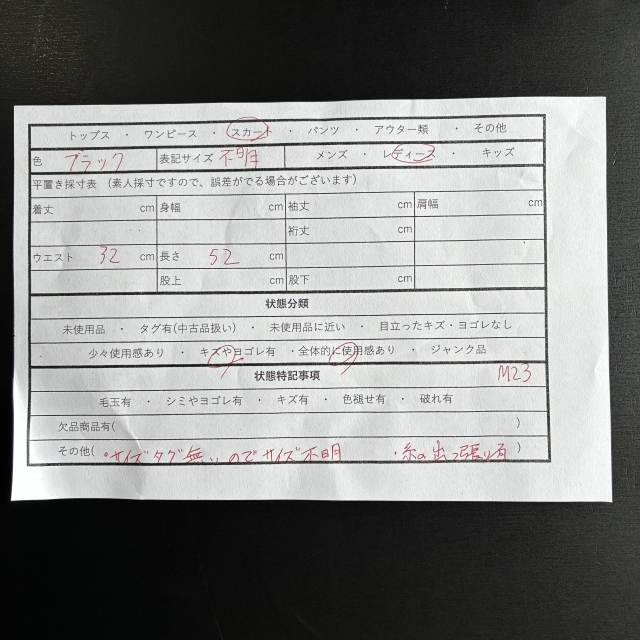 トップス ・ ワンピース ・ スカート ・ パンツ ・ アウター類 ・ その他
色 ブラック 表記サイズ 不明 メンズ ・ レディース ・ キッズ
平置き採寸表 (素人採寸ですので、誤差がでる場合がございます)
着丈 cm 身幅 cm 袖丈 cm 肩幅 cm
裄丈 cm
ウエスト 32 cm 長さ 52 cm
股上 cm 股下 cm
状態分類
未使用品 ・ タグ有(中古品扱い) ・ 未使用品に近い ・ 目立ったキズ・ヨゴレなし
少々使用感あり ・ キズやヨゴレ有 ・全体的に使用感あり ・ ジャンク品
状態特記事項 M23
毛玉有 ・ シミやヨゴレ有 ・ キズ有 ・ 色褪せ有 ・ 破れ有
欠品商品有( )
その他( ・サイズタグ無いのでサイズ不明 ・糸の出っ張り有 )